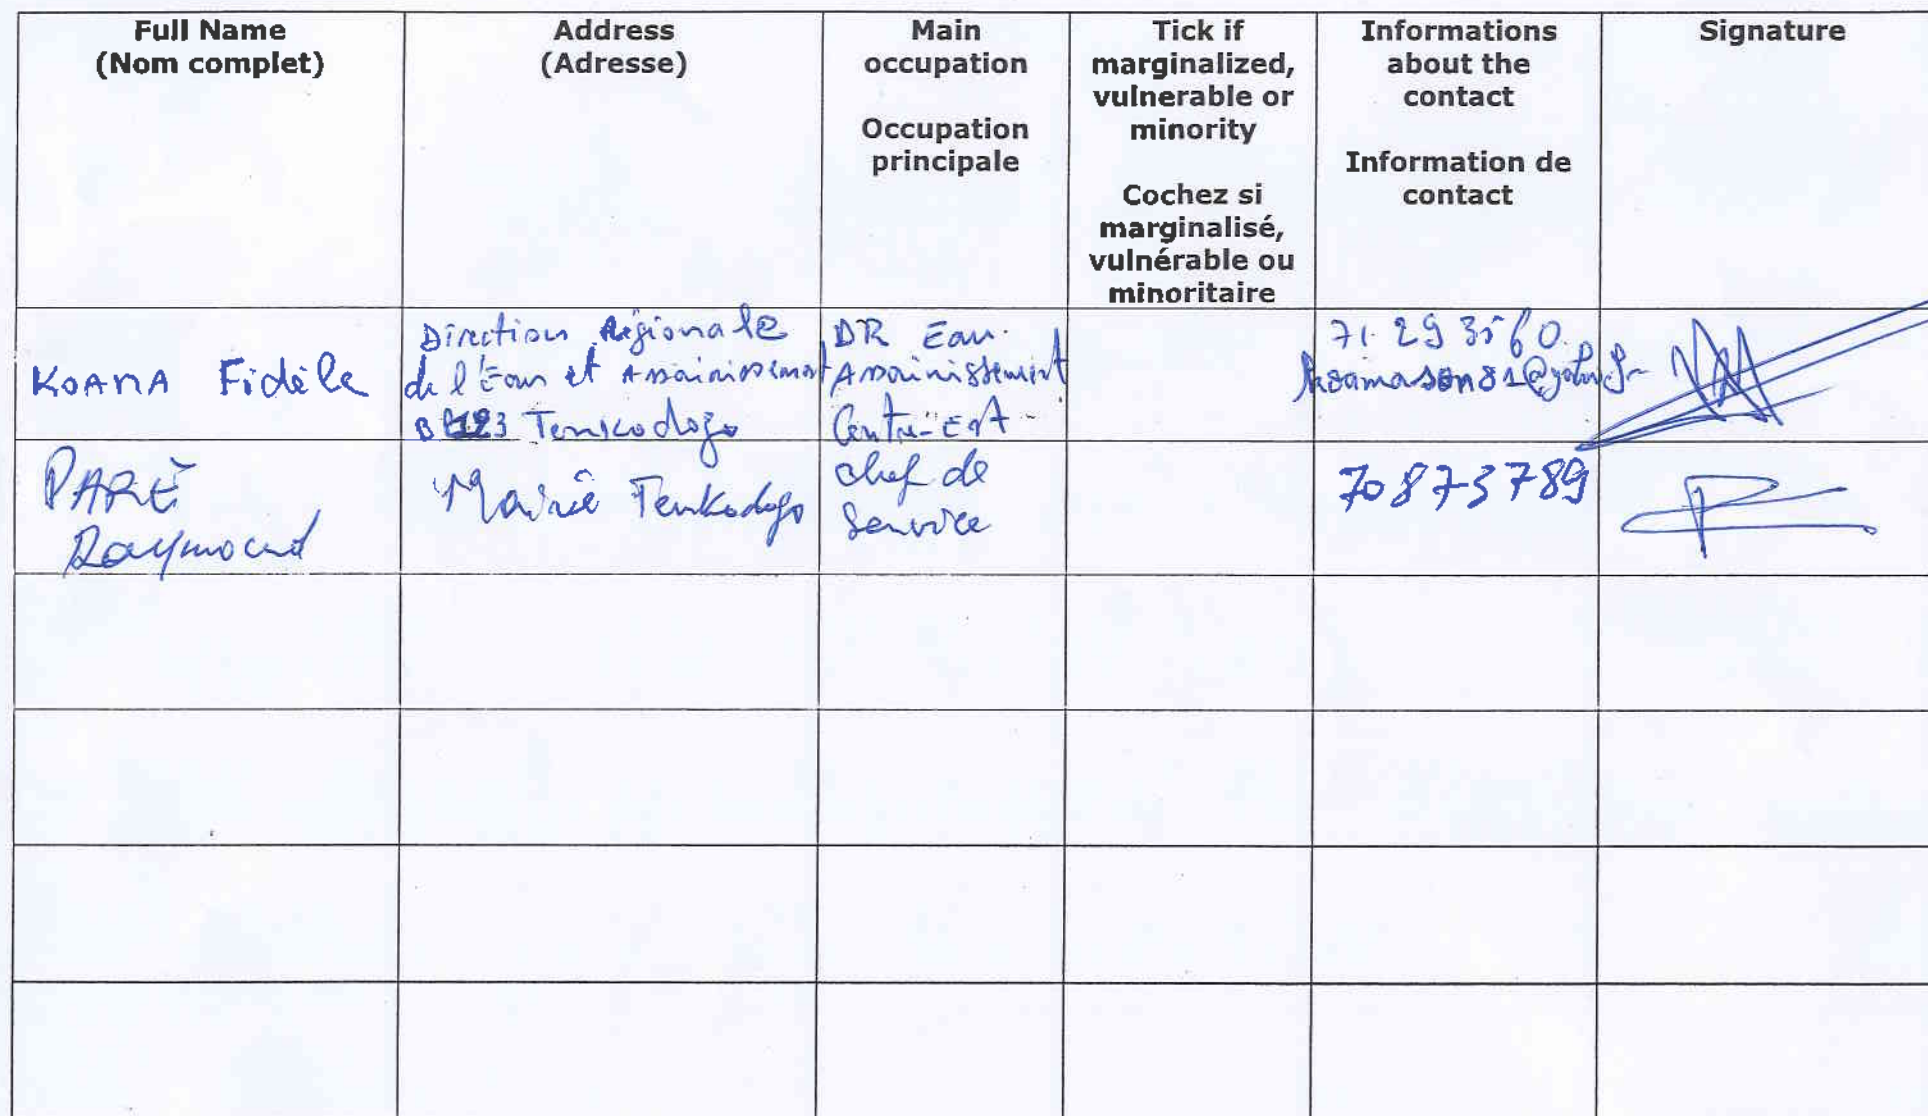 Full Name
(Nom complet)
Address
(Adresse)
Main
occupation
Occupation
principale
Tick if
marginalized,
vulnerable or
minority
Cochez si
marginalisé,
vulnérable ou
minoritaire
Informations
about the
contact
Information de
contact
Signature
KOAMA Fidèle
Direction Régionale
de l'Eau et Assainissement
Tenkodogo
DR Eau
Assainissement
Centre-Est
71 29 35 60
PARÉ
Raymond
Mairie Tenkodogo
chef de
Service
70873789